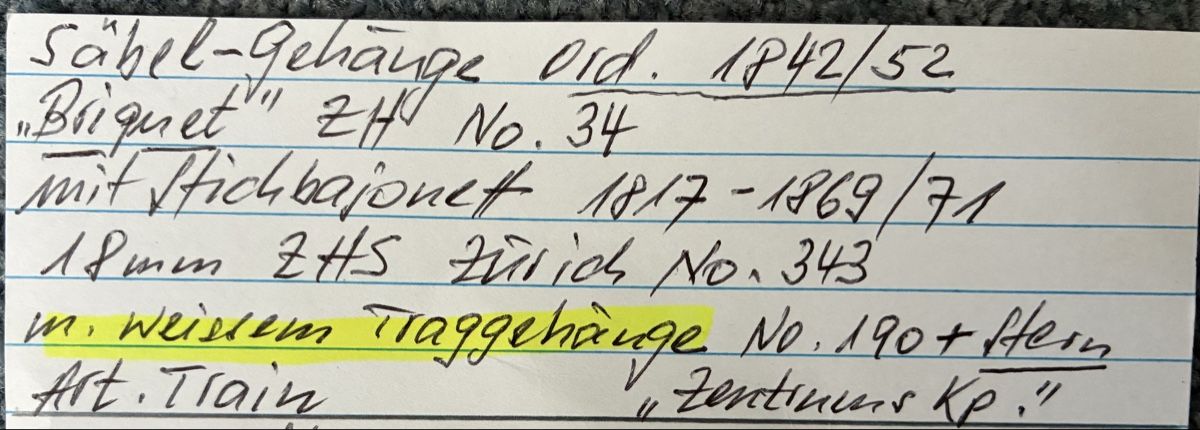 Säbel-Gehänge Ord. 1842/52
„Briquet" ZH No. 34
mit Stichbajonett 1817-1869/71
18mm ZHS Zürich No. 343
m. weissem Traggehänge No. 190 + Stern
Art. Train „Zentrums Kp."